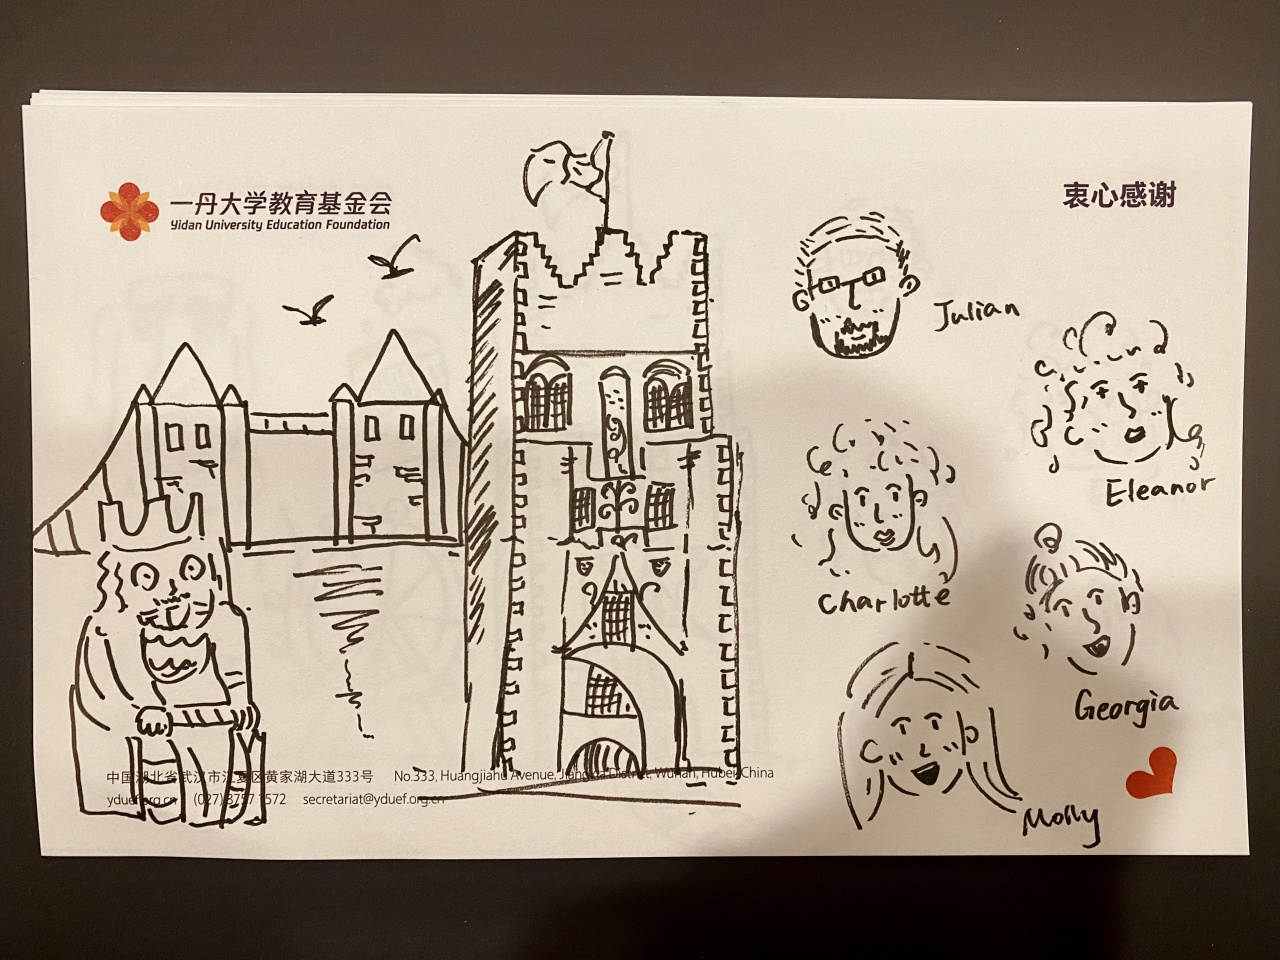 一丹大学教育基金会
Yidan University Education Foundation
衷心感谢
Julian
Eleanor
Charlotte
Georgia
Molly
中国湖北省武汉市江夏区黄家湖大道333号 No.333, Huangjiahu Avenue, Jiangxia District, Wuhan, Hubei, China
yduef.org.cn (027) 8757 1572 secretariat@yduef.org.cn